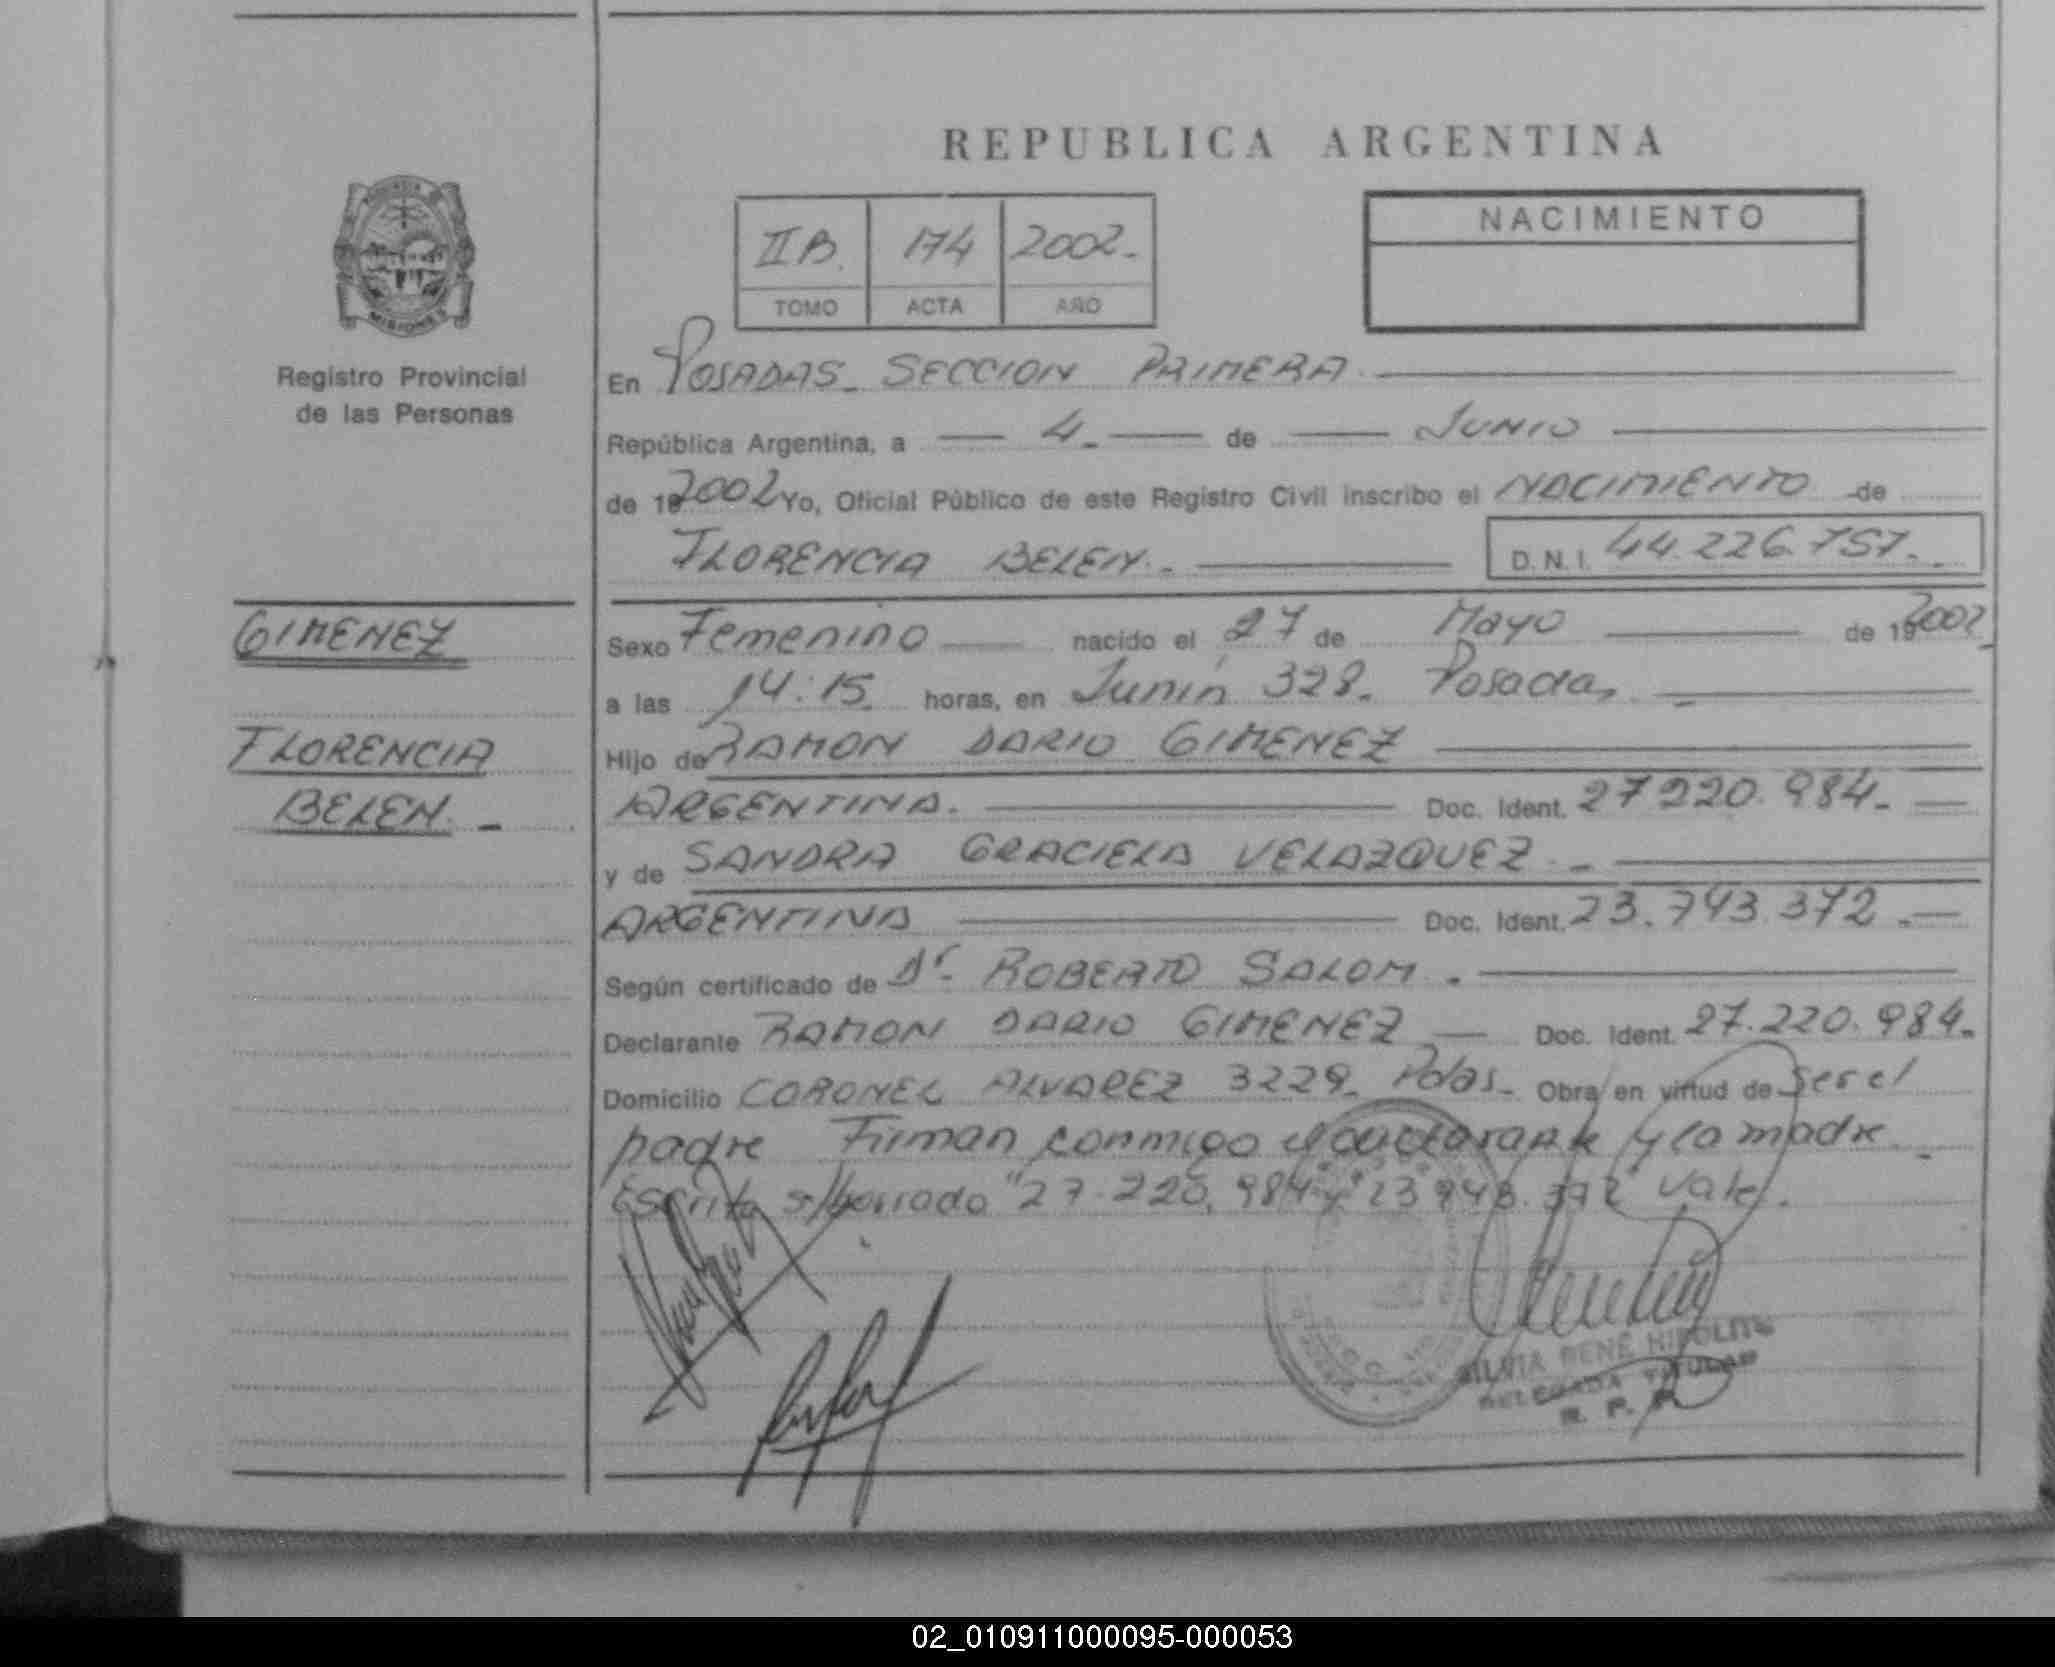 REPUBLICA ARGENTINA
MISIONES
Registro Provincial
de las Personas
II B. 174 2002.-
TOMO ACTA AÑO
NACIMIENTO
En POSADAS - SECCION PRIMERA
República Argentina, a 4.- de JUNIO
de 19 2002 Yo, Oficial Público de este Registro Civil inscribo el NACIMIENTO de
FLORENCIA BELEN.- D.N.I. 44.226.757.-
GIMENEZ
FLORENCIA
BELEN.-
Sexo Femenino nacido el 27 de Mayo de 19 2002
a las 14:15 horas, en Junín 328. Posadas
Hijo de RAMON DARIO GIMENEZ
ARGENTINA. Doc. Ident. 27 220.984.-
y de SANDRA GRACIELA VELAZQUEZ.-
ARGENTINA Doc. Ident. 23.743.372.-
Según certificado de Dr. ROBERTO SALOM.
Declarante RAMON DARIO GIMENEZ Doc. Ident. 27.220.984.
Domicilio CORONEL ALVAREZ 3229. Pdas. Obra en virtud de ser el
padre Firman conmigo el declarante y la madre.
Escrito s/borrado "27.220.984 y 23 743.372" Vale.
SILVIA RENÉ HIPOLITO
DELEGADA TITULAR
R. P. P.
02_010911000095-000053